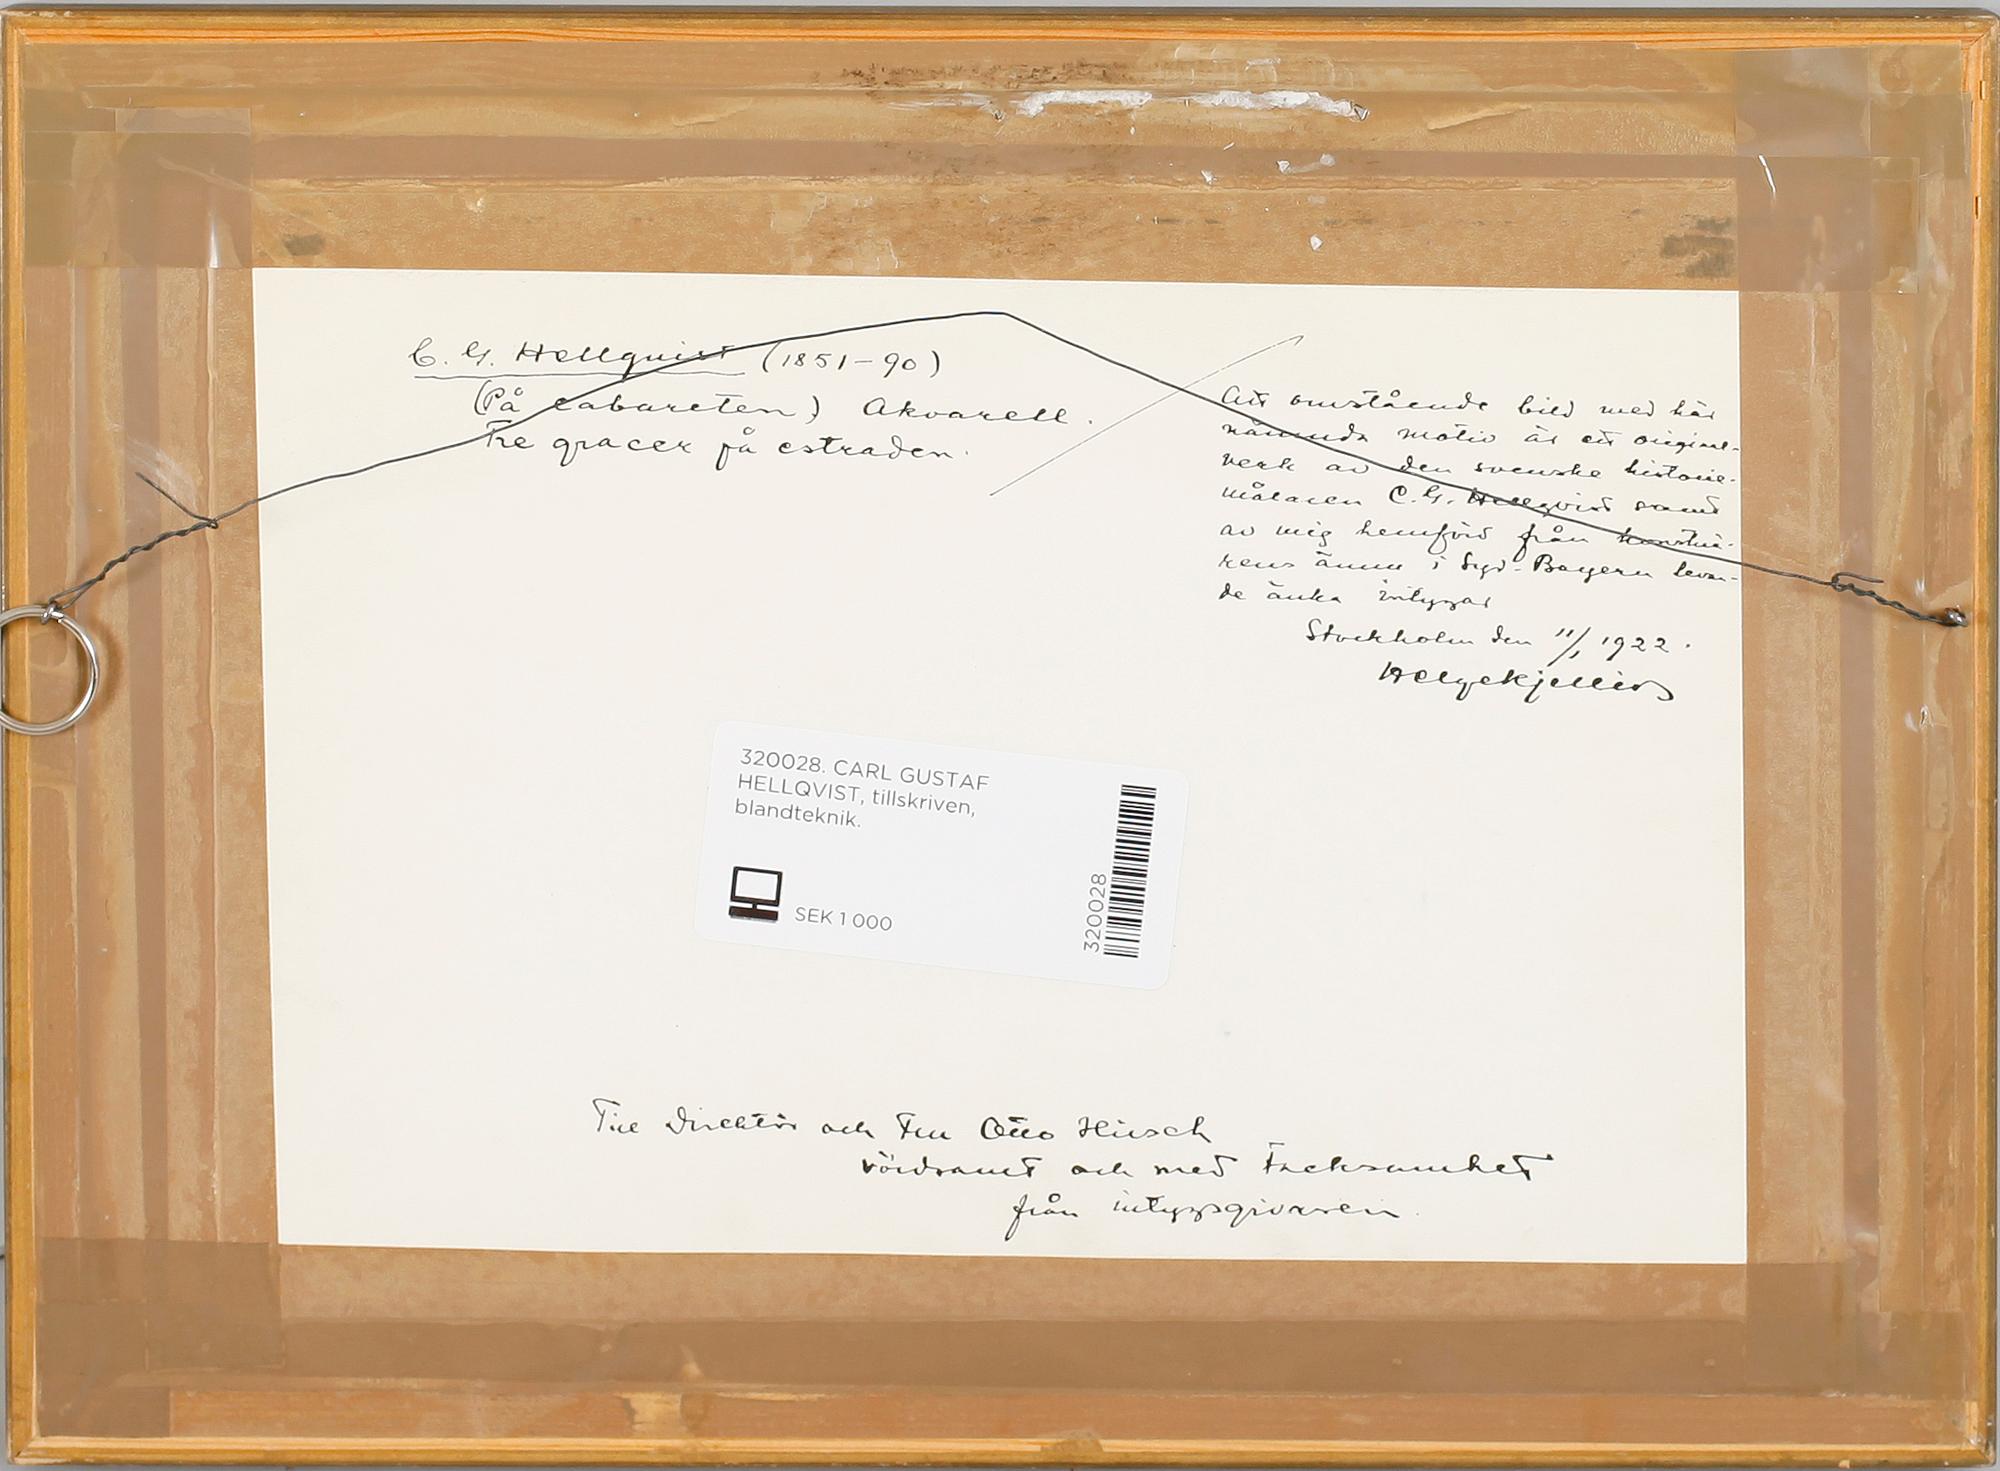 C. G. Hellquist (1851-90)
(På cabareten) Akvarell.
Tre gracer på estraden.
Att omstående bild med här
nämnda motiv är ett original-
verk av den svenske historie-
målaren C. G. Hellqvist samt
av mig hemförd från konstnä-
rens ännu i Syd-Bayern levan-
de änka intygar
Stockholm den 11/1 1922.
Helge Kjellin
320028. CARL GUSTAF
HELLQVIST, tillskriven,
blandteknik.
SEK 1 000
320028
Till Direktör och Fru Otto Hirsch
vördsamt och med tacksamhet
från intygsgivaren.